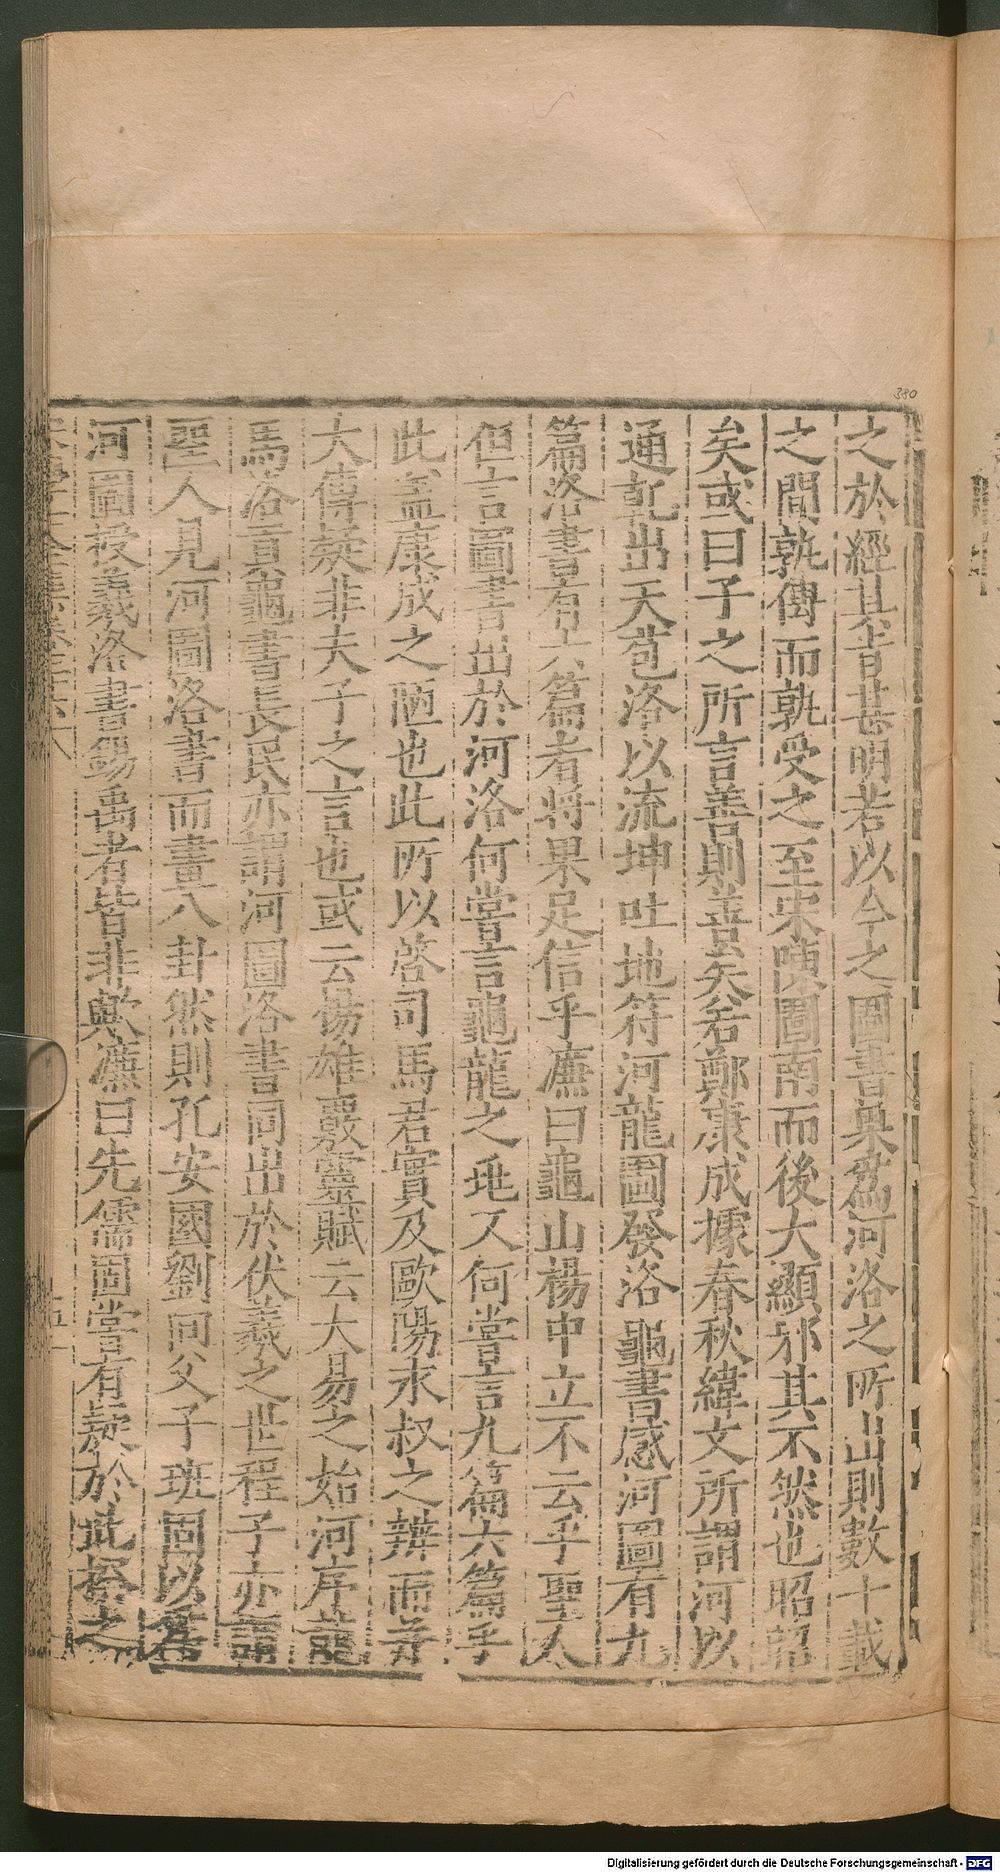 380
之於經其旨甚明若以今之圖書果爲河洛之所出則數十載
之間孰傳而孰受之至宋陳圖南而後大顯邪其不然也昭昭
矣或曰子之所言善則善矣若鄭康成據春秋緯文所謂河以
通乾出天苞洛以流坤吐地符河龍圖發洛龜書感河圖有九
篇洛書有六篇者將果足信乎濂曰龜山楊中立不云乎聖人
但言圖書出於河洛何嘗言龜龍之兆又何嘗言九篇六篇乎
此蓋康成之陋也此所以啓司馬君實及歐陽永叔之辨而并
大傳疑非夫子之言也或云揚雄覈靈賦云大易之始河序龍
馬洛貢龜書長民亦謂河圖洛書同出於伏羲之世程子亦謂
聖人見河圖洛書而畫八卦然則孔安國劉向父子班固以爲
河圖授羲洛書錫禹者皆非歟濂曰先儒固嘗有疑於此揆之
Digitalisierung gefördert durch die Deutsche Forschungsgemeinschaft - DFG